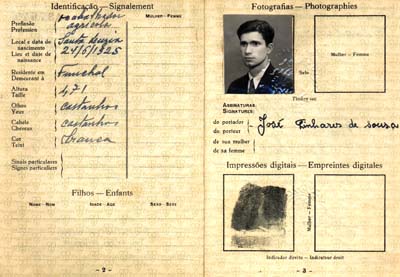 Identificação — Signalement
MULHER - FEMME
Profissão
Profession
agrícola
Local e data de
nascimento
Lieu et date de
naissance
Santa Luzia
24/5/1925
Residente em
Demeurant à
Funchal
Altura
Taille
1,71
Olhos
Yeux
castanhos
Cabelo
Cheveux
castanhos
Côr
Teint
branca
Sinais particulares
Signes particuliers
Filhos — Enfants
NOME - NOM IDADE - AGE SEXO - SEXE
- 2 -
Fotografias — Photographies
Mulher – Femme
Selo
ASSINATURAS:
SIGNATURES:
do portador
du porteur
José Pinhares de sousa
de sua mulher
de sa femme
Impressões digitais — Empreintes digitales
Mulher – Femme
Indicador direito – Indicateur droit
- 3 -